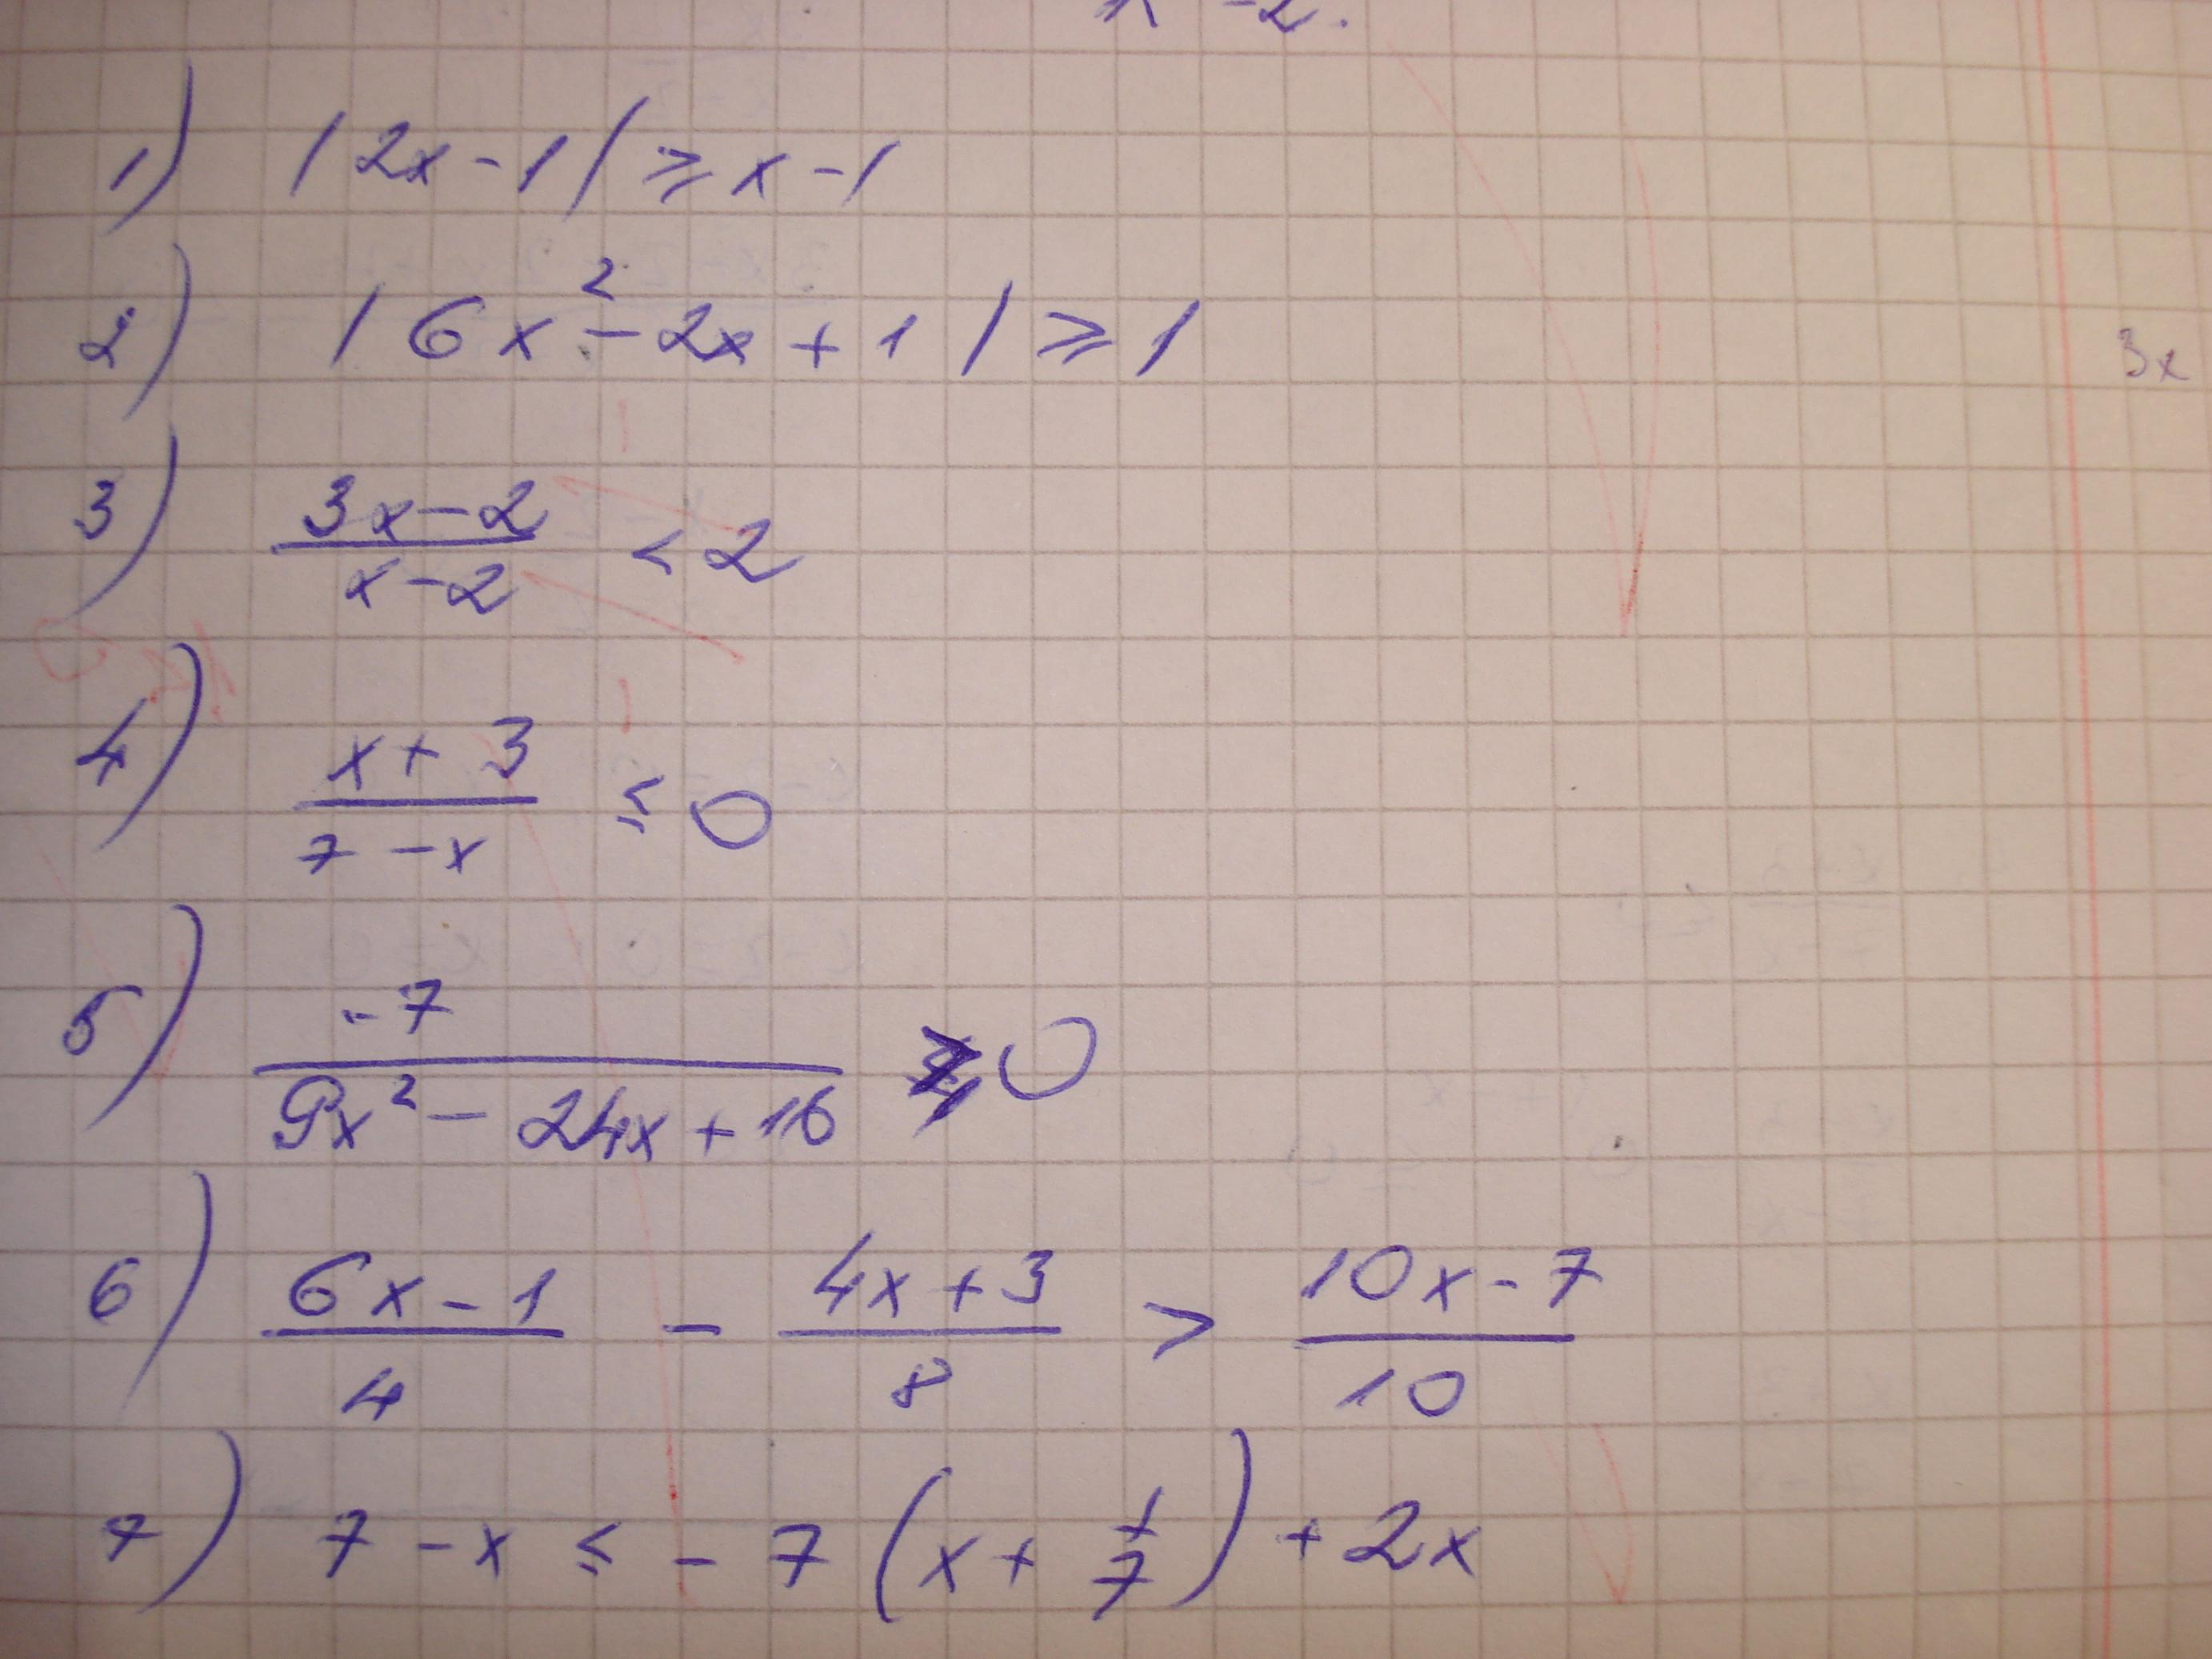 x -2.
1) |2x-1| ≥ x-1
2) |6x²-2x+1| ≥ 1
3x
3) (3x-2)/(x-2) < 2
4) (x+3)/(7-x) ≤ 0
5) -7/(9x²-24x+16) ≥ 0
6) (6x-1)/4 - (4x+3)/8 > (10x-7)/10
7) 7-x ≤ -7(x+1/7)+2x